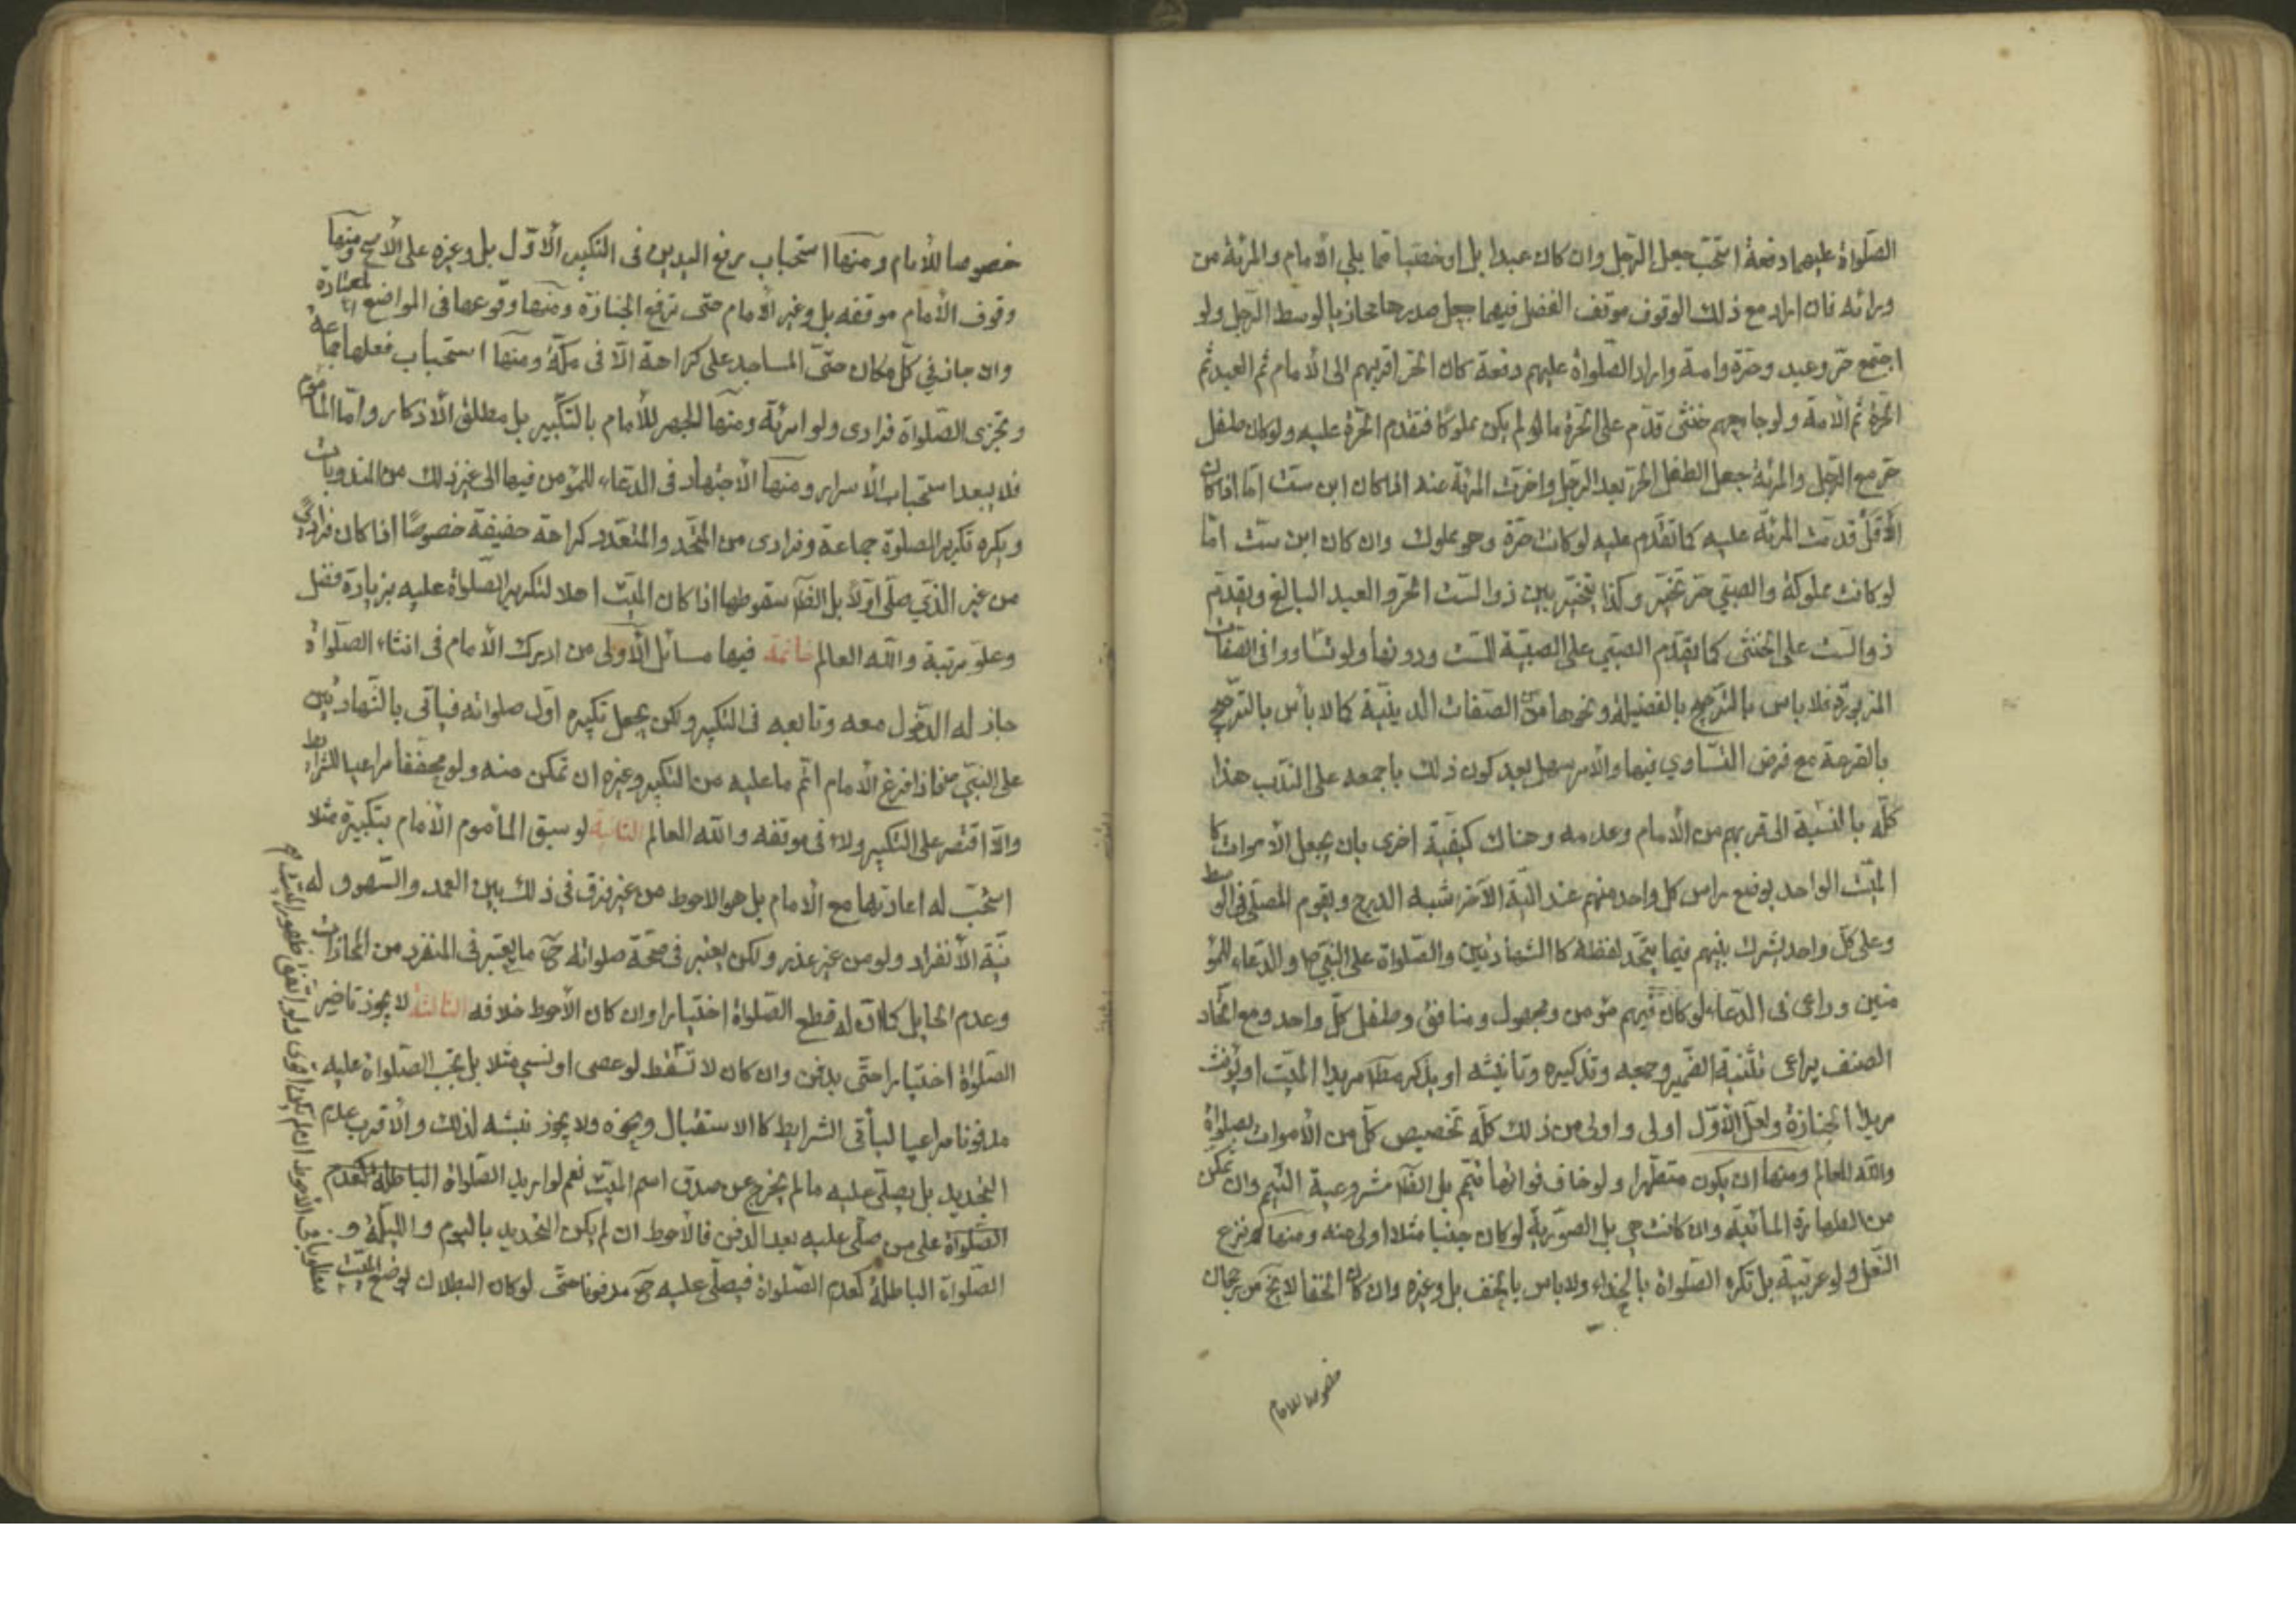 الصّلواة عليهما دفعة استحبّ جعل الرّجل وان كان عبدا بل او خصيّا ممّا يلي الأمام والمرئة من
ورائه فان اراد مع ذلك الوقوف موقف الفضل فيهما جعل صدرها محاذيا لوسط الرّجل ولو
اجتمع حرّ وعبد وحرّة وامة واراد الصّلواة عليهم دفعة كان الحرّ اقربهم الى الأمام ثم العبد ثم
الحرّة ثم الأمة ولو جامعهم خنثى قدّم على الحرّة ما لو لم يكن مملوكا فتقدم الحرّة عليه ولو كان طفل
حرّ مع الرّجل والمرئة جعل الطفل الحرّ بعد الرّجل واخرّت المرئة عنه اذا كان ابن ستّ امّا اذا كان
الأقلّ قدمت المرئة عليه كما تقدم عليه لو كانت حرّة وهو مملوك وان كان ابن ستّ امّا
لو كانت مملوكة والصبّي حرّ تخيّر وكذا يتخيّر بين ذو الستّ الحرّ والعبد البالغ ويقدّم
ذو الستّ على الخنثى كما يقدّم الصبّي على الصبيّة للستّ ودونها ولو تساووا فى الصّفات
المزبورة فلا باس بالترجيح بالفضيلة ونحوها من الصّفات الدينيّة كما لا باس بالترجيح
بالقرعة مع فرض التّساوي فيها والأمر سهل بعد كون ذلك باجمعه على النّدب هذا
كلّه بالنّسبة الى قربهم من الأمام وعدمه وهناك كيفيّة اخرى بان يجعل الأموات كا
الميّت الواحد بوضع راس كل واحد منهم عند الية الآخر شبه الدرج ويقوم المصلّى فى الوسط
وعلى كلّ واحد يشرك بينهم فيما يتحّد لفظه كا الشهادتين والصّلواة على النبّي ص والدعاء للمؤ
منين وراعى فى الدّعاء لو كان فيهم مؤمن ومجهول ومنافق وطفل كلّ واحد ومع اتحّاد
الصنف يراعى تثنية الضّمير وجمعه وتذكيره وتانيثه او يذكر مط مريدا الميّت او يؤنث
مريدا الجنازة ولعل الأوّل اولى واولى من ذلك كلّه تخصيص كلّ من الأموات بصلواة
والله العالم ومنها ان يكون متطهّرا ولو خاف فواتها تيمّم بل الظّ مشروعية التيمم وان تمكّن
من الطهارة المائية وان كانت هى بل الصّورية لو كان جنبا مثلا اولى منه ومنها نزع
النّعل ولو عربيّة بل تكره الصّلواة بالحذاء ولا باس بالخف بل وغيره وان كان الحفا لا يخ من رجحان
خصوصا للامام
خصوصا للأمام ومنها استحباب رفع اليدين فى التكبير الأوّل بل وغيره على الأصح ومنها
وقوف الأمام موقفه بل وغير الأمام حتى ترفع الجنازة ومنها وقوعها فى المواضع المعتادة
والا جاز في كلّ مكان حتّى المساجد على كراهة الّا فى مكّة ومنها استحباب فعلها جماعة
وتجزى الصّلواة فرادى ولو امرئة ومنها الجهر للأمام بالتكّبير بل مطلق الأذكار وامّا المأموم
فلا يبعد استحباب الأسرار ومنها الأجتهاد فى الدّعاء للمؤمن فيها الى غير ذلك من المندوبات
ويكره تكرير الصلوة جماعة وفرادى من المتّحد والمتعّدد كراهة خفيفة خصوصًا اذا كان فرادىً
من غير الذّي صلّى اوّلا بل الظّ سقوطها اذا كان الميّت اهلا لتكرير الصّلواة عليه بزيادة فضل
وعلوّ مرتبة والله العالم خاتمة فيها مسائل الأولى من ادرك الأمام فى اثناء الصّلواة
جاز له الدّخول معه وتابعه فى التكبير ولكن يجعل تكبيره اوّل صلواته فياتى بالشّهادتين
على النبّي ص فاذا فرغ الأمام اتم ما عليه من التكبير وغيره ان تمكن منه ولو مخففا مراعيا للشرايط
والّا اقتصر على التكبير ولاء فى موقفه والله العالم الثانية لو سبق المأموم الأمام بتكبيرة مثلا
استحّب له اعادتها مع الأمام بل هو الاحوط من غير فرق فى ذلك بين العمد والسّهو وله
نيّة الأنفراد ولو من غير عذر ولكن يعتبر فى صحّة صلواته ح ما يعتبر فى المنفرد من المحاذات
وعدم الحايل كما ان له قطع الصّلواة اختيارا وان كان الأحوط خلافه الثالثة لا يجوز تاخير
الصّلواة اختيارا حتّى يدفن وان كان لا تسقط لو عصى او نسي مثلا بل تجب الصّلواة عليه
مدفونا مراعيا لباقى الشرايط كا الاستقبال ونحوه ولا يجوز نبشه لذلك والأقرب عدم
التحديد بل يصلّى عليه ما لم يخرج عن صدق اسم الميّت نعم لو اريد الصّلواة الباطلة كعدم
الصّلواة على من صلّى عليه بعد الدفن فالأحوط ان لم يكن التحديد باليوم والليلة و
الصّلواة الباطلة كعدم الصّلواة فيصلّى عليه ح مدفونا حتّى لو كان البطلان لوضع الميّت
مقلوبا فى الأحوط ان لم يكن اقوى ولو اتفق ظهور الميّت